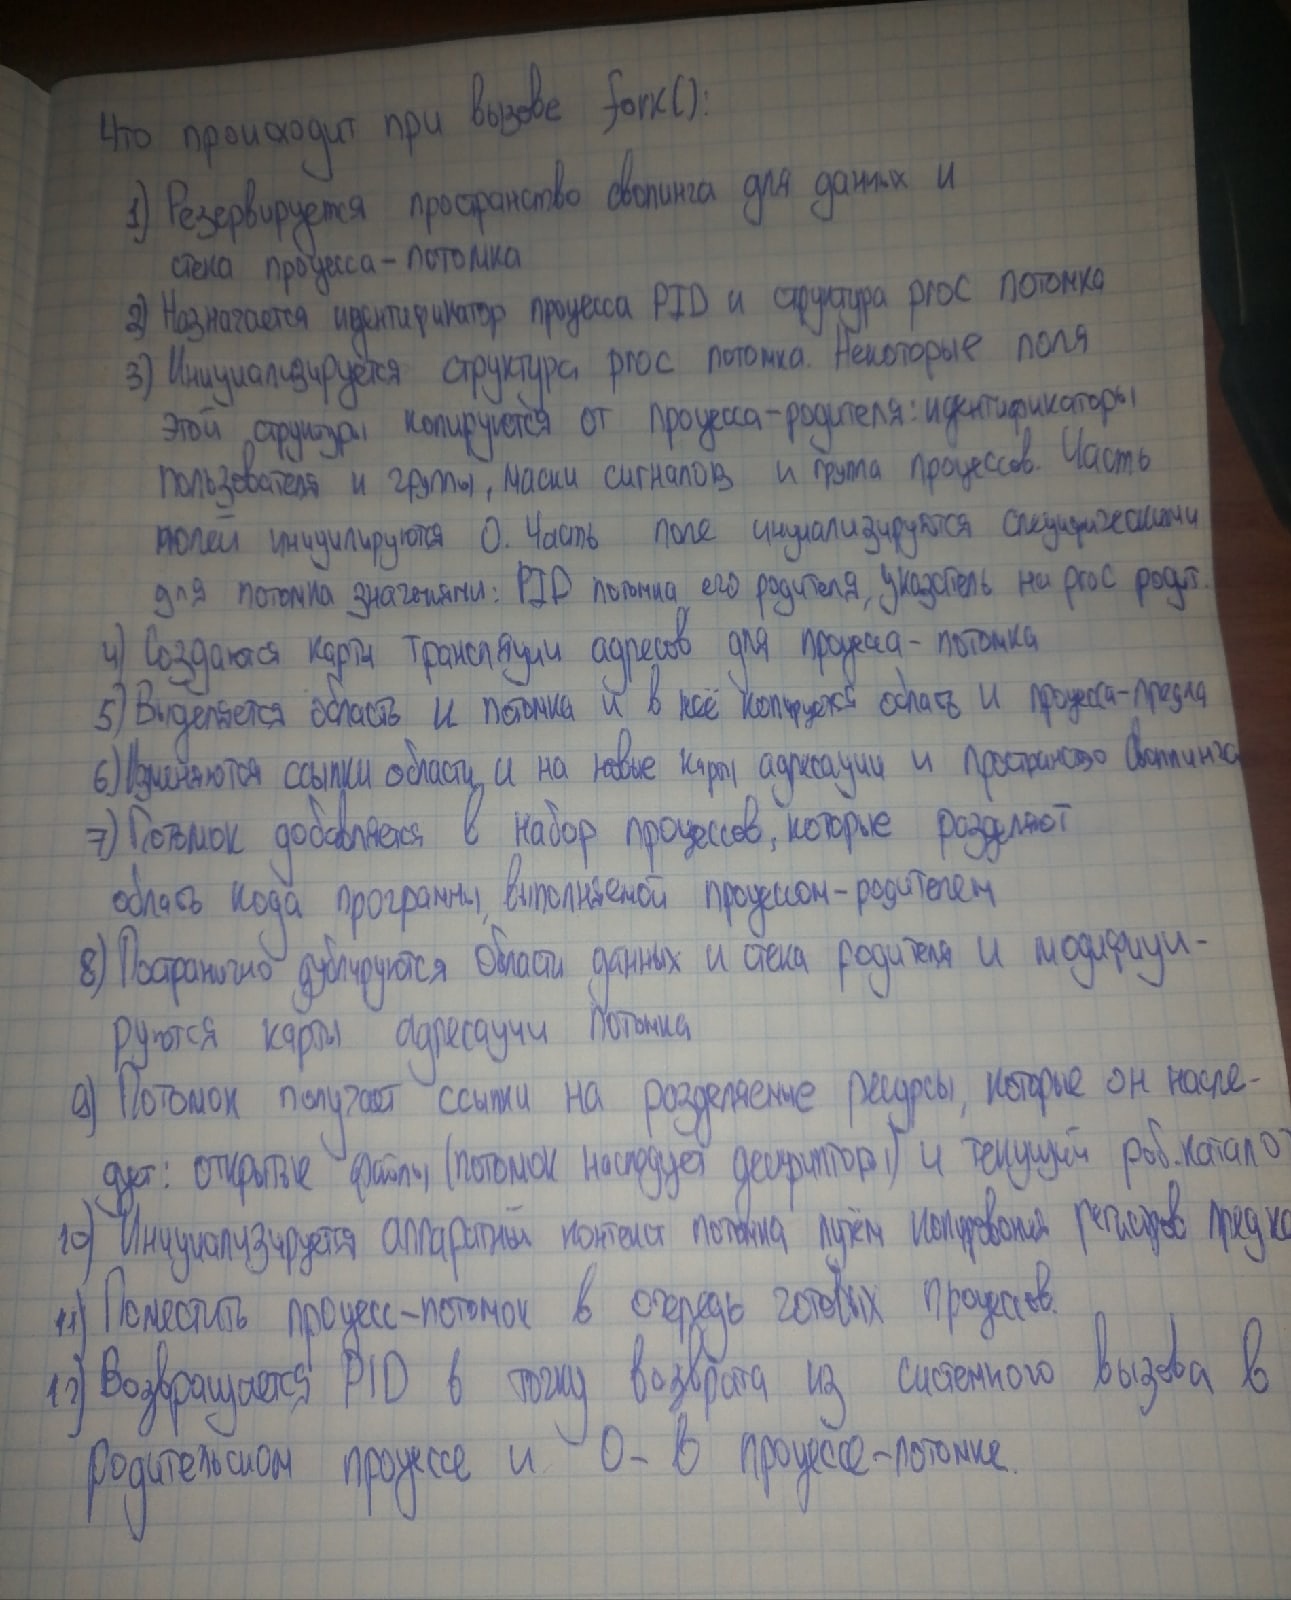 Что происходит при вызове fork():
1) Резервируется пространство свопинга для данных и
стека процесса-потомка
2) Назначается идентификатор процесса PID и структура proc потомка
3) Инициализируется структура proc потомка. Некоторые поля
этой структуры копируются от процесса-родителя: идентификаторы
пользователя и группы, маски сигналов и группа процессов. Часть
полей инициилируются 0. Часть поле инициализируются специфическими
для потомка значениями: PID потомка его родителя, указатель на proc родит.
4) Создаются карты трансляции адресов для процесса-потомка
5) Выделяется область u потомка и в неё копируется область u процесса-предка
6) Изменяются ссылки области u на новые карты адресации и пространство своппинга
7) Потомок добавляется в набор процессов, которые разделяют
область кода программы, выполняемой процессом-родителем
8) Постранично дублируются области данных и стека родителя и модифици-
руются карты адресации потомка
9) Потомок получает ссылки на разделяемые ресурсы, которые он насле-
дует: открытые файлы (потомок наследует дескрипторы) и текущий раб. катало
10) Инициализируется аппаратный контекст потомка путём копирования регистров предка
11) Поместить процесс-потомок в очередь готовых процессов.
12) Возвращается PID в точку возврата из системного вызова в
родительском процессе и 0 - в процессе-потомке.